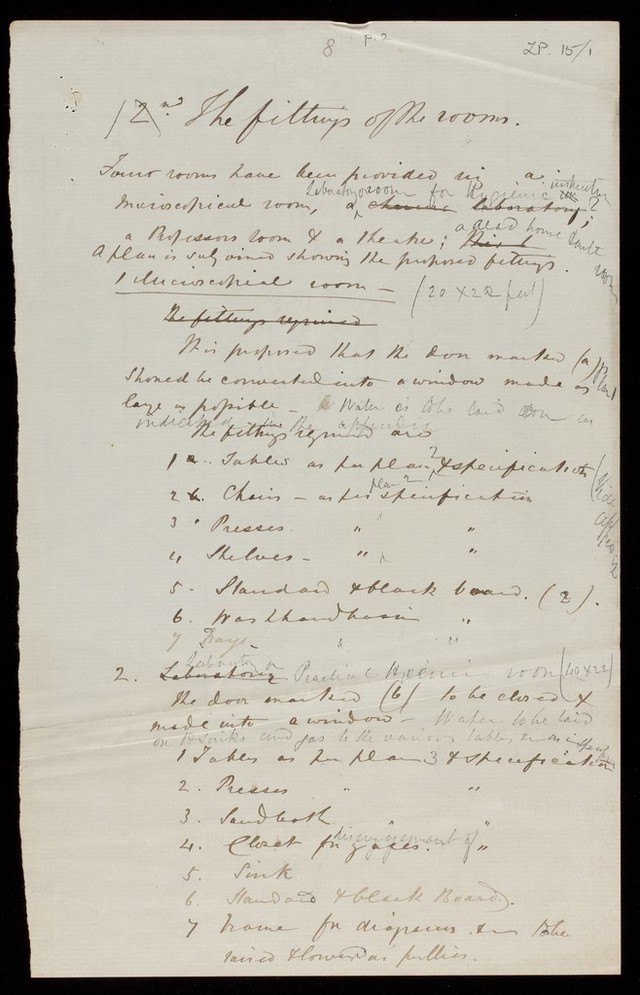 8 p. 2 LP. 15/1
2nd The fittings of the rooms.
Four rooms have been provided viz a
Microscopical room, a Laboratory or room for Hygiene instruction
a Professors room & a theatre; a dead house
A plan is subjoined showing the proposed fittings.
1 Microscopical room – (20 x 22 feet)
The fittings required
It is proposed that the door marked (a) plan 1
should be converted into a window made as
large as possible – Water is to be laid on as
indicated in the appendix
The fittings required are
1 a. Tables as per plan 2 & specification
2 b. Chairs – as per plan 2 specification
3 Presses " "
4 Shelves – " "
5. Standard & black board. (2).
6. Washhand basin "
7 Trays – " "
2. Laboratory Laboratory or Practical Hygiene room (40 x 22)
The door marked (b) to be closed &
made into a window – Water to be laid
on to sinks and gas to the various tables as in
1 Tables as per plan 3 & specification
2. Presses " "
3. Sandbath " "
4. Closet for disengagement of gases. "
5. Sink
6. Standard & black Board).
7 Frame for diagrams to be
raised & lowered as pullies.